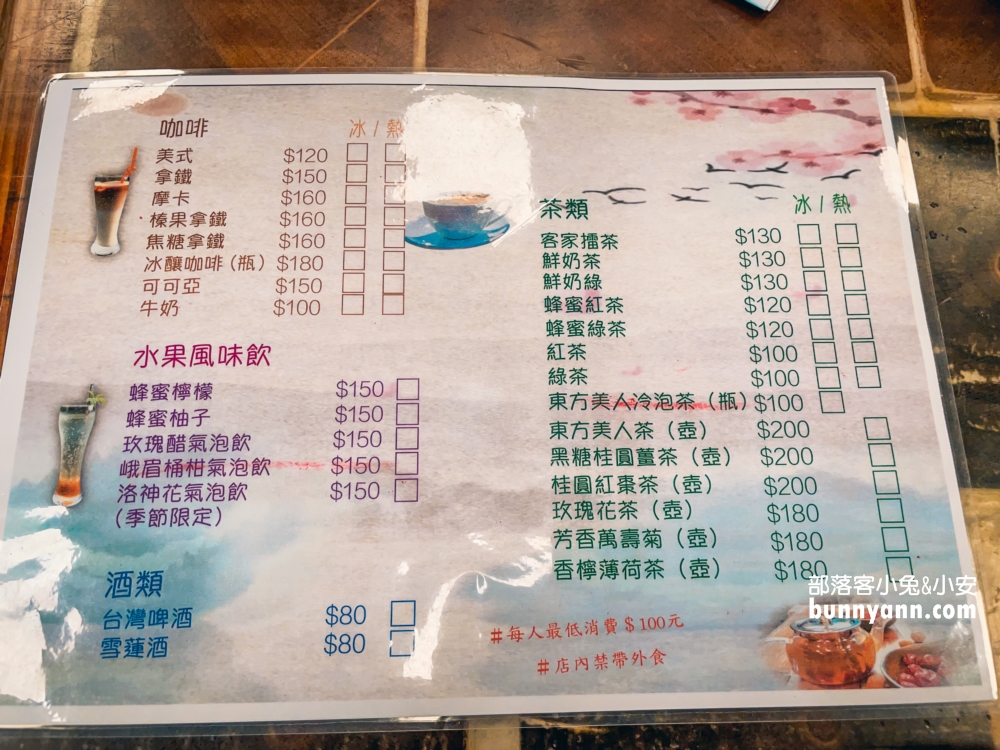 咖啡 冰 / 熱
美式 $120
拿鐵 $150
摩卡 $160
榛果拿鐵 $160
焦糖拿鐵 $160
冰釀咖啡 (瓶) $180
可可亞 $150
牛奶 $100
水果風味飲
蜂蜜檸檬 $150
蜂蜜柚子 $150
玫瑰醋氣泡飲 $150
峨眉桶柑氣泡飲 $150
洛神花氣泡飲 $150
(季節限定)
酒類
台灣啤酒 $80
雪蓮酒 $80
茶類 冰 / 熱
客家擂茶 $130
鮮奶茶 $130
鮮奶綠 $130
蜂蜜紅茶 $120
蜂蜜綠茶 $120
紅茶 $100
綠茶 $100
東方美人冷泡茶 (瓶) $100
東方美人茶 (壺) $200
黑糖桂圓薑茶 (壺) $200
桂圓紅棗茶 (壺) $200
玫瑰花茶 (壺) $180
芳香萬壽菊 (壺) $180
香檸薄荷茶 (壺) $180
#每人最低消費 $100元
#店內禁帶外食
部落客小兔&小安
bunnyann.com